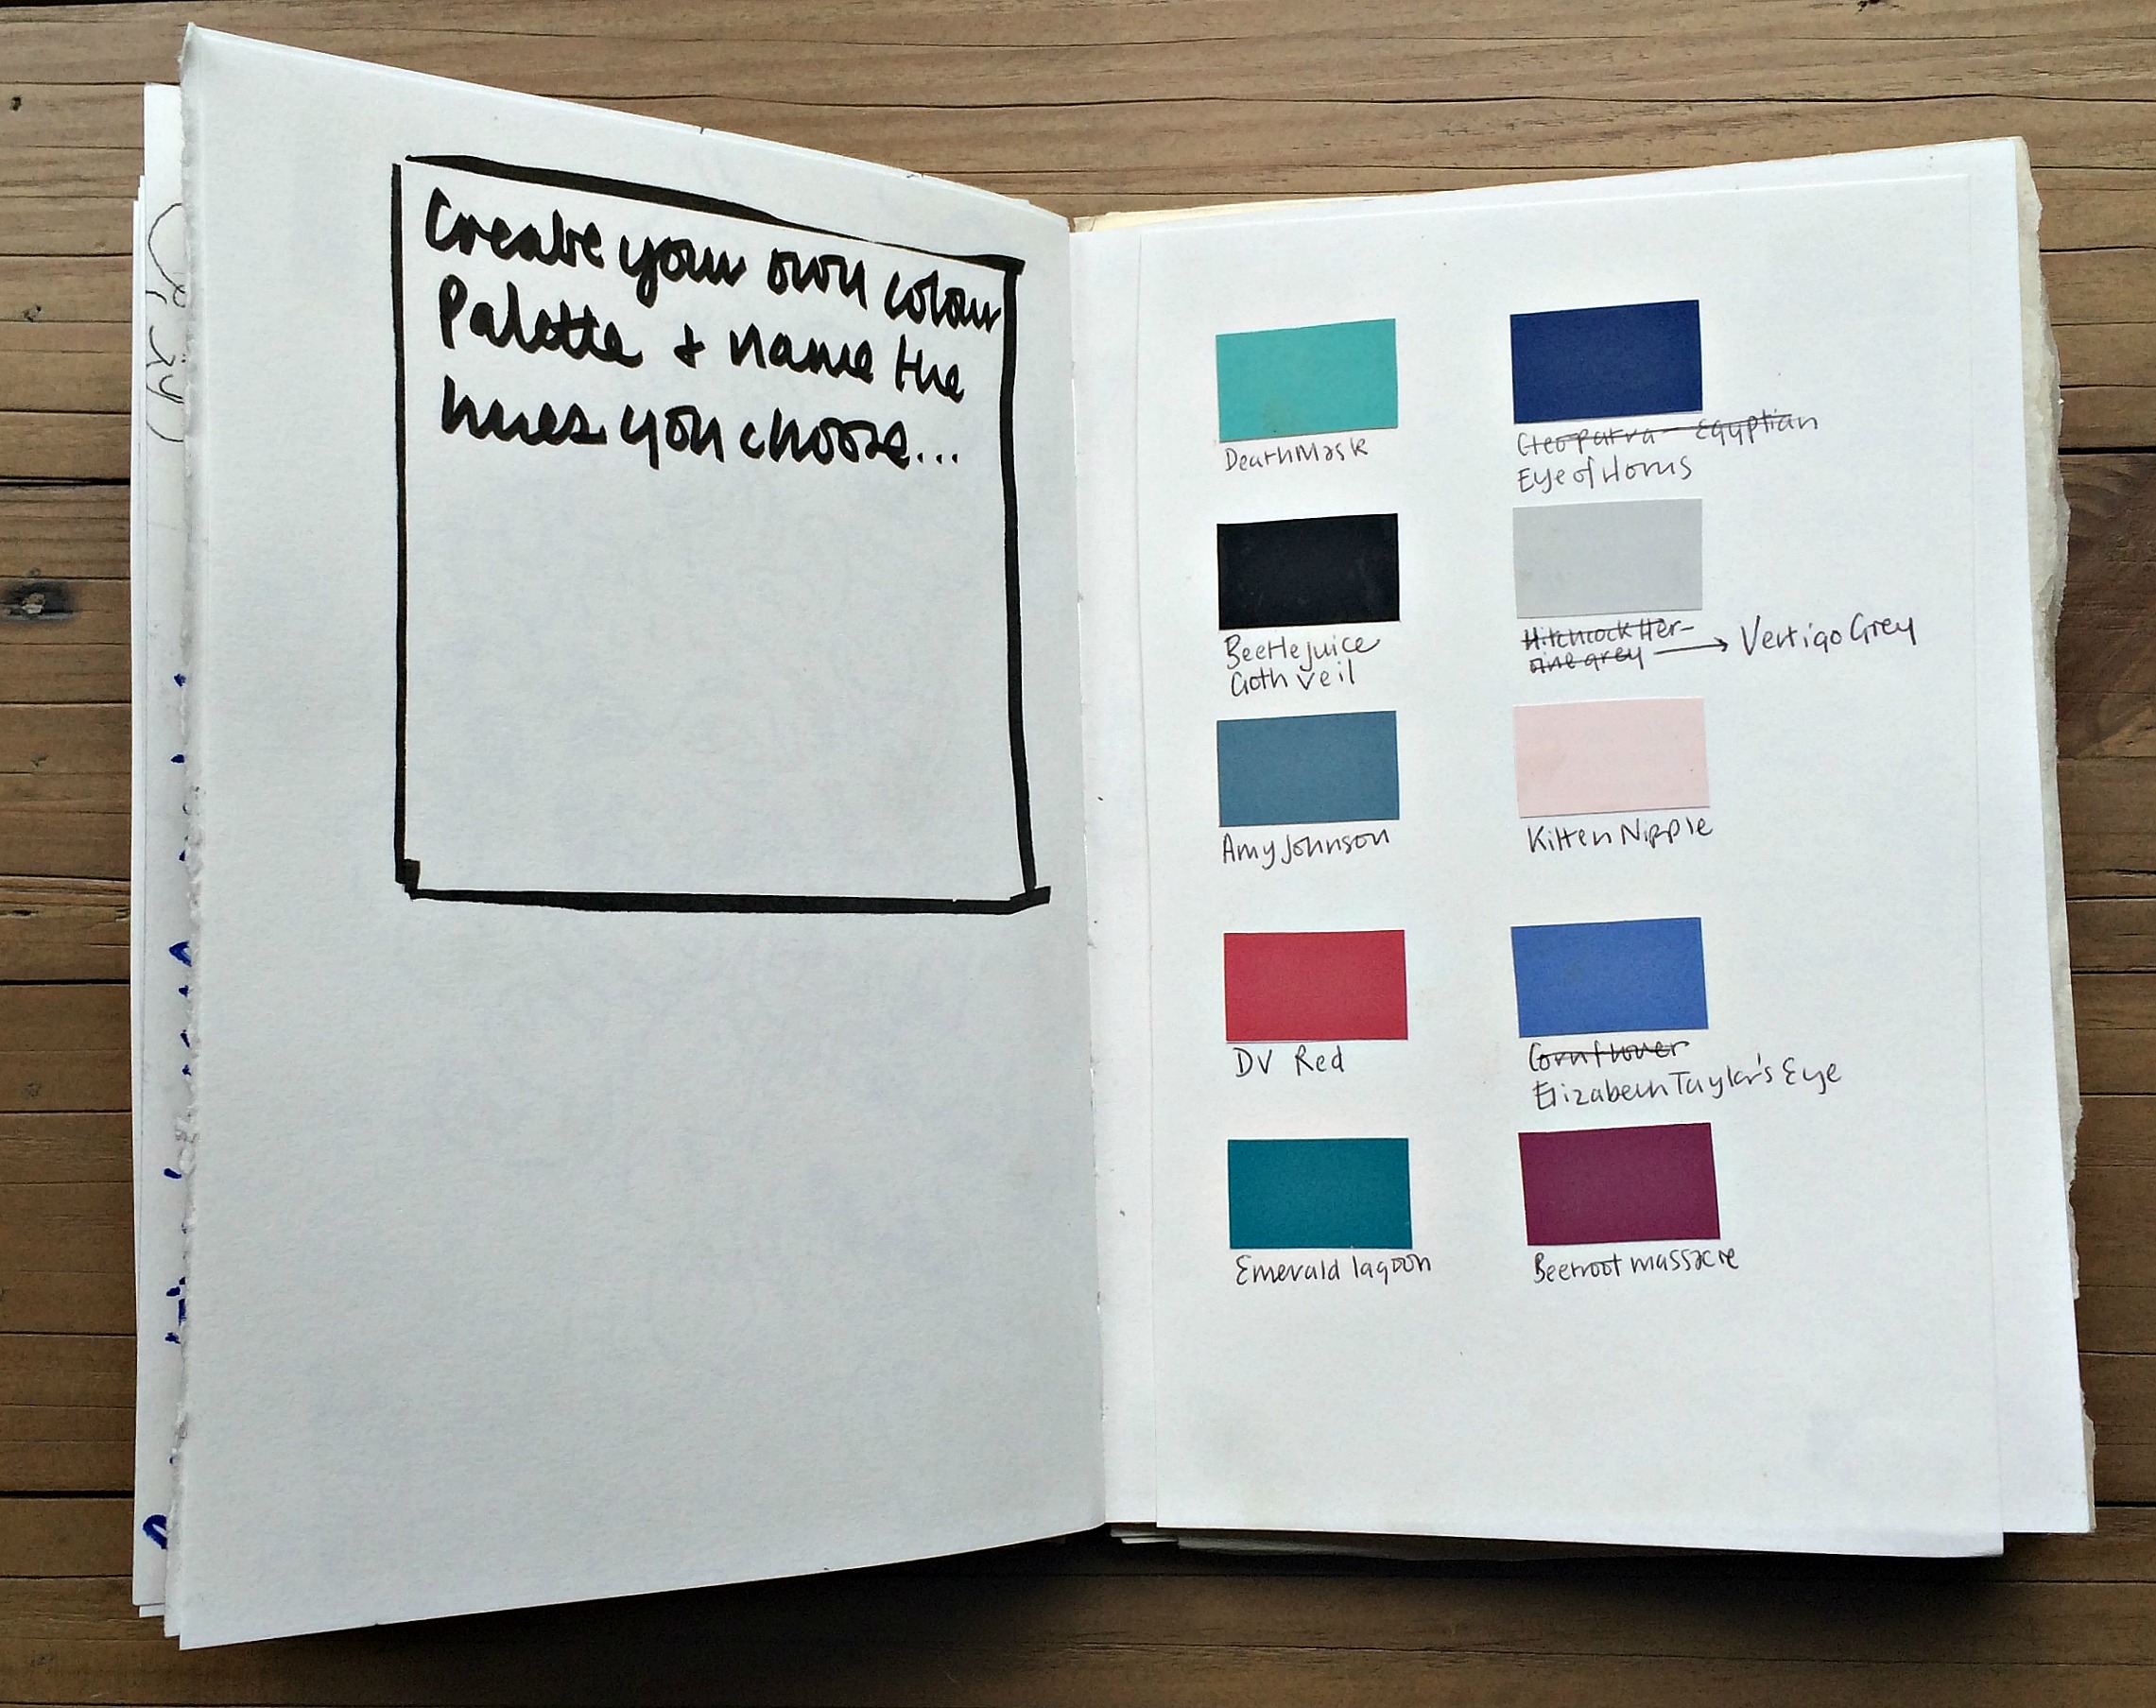 Create your own colour
Palette + name the
hues you choose...
Death Mask
Cleopatra Egyptian
Eye of Horus
Beetlejuice
Goth veil
Hitchcock Her-
oine grey → Vertigo Grey
Amy Johnson
Kitten Nipple
DV Red
Cornflower
Elizabeth Taylor's Eye
Emerald lagoon
Beetroot massacre